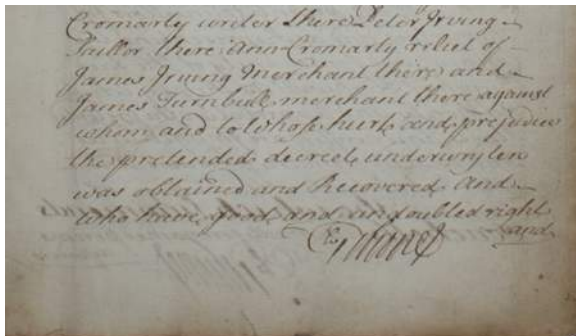 Cromarty writer there Peter Irving
Taillor there Ann Cromarty relict of
James Irving Merchant there and
James Turnbull merchant there against
whom and to whose hurt and prejudice
the pretended decreet underwryten
was obtained and Recovered And
who have good and undoubted right
and